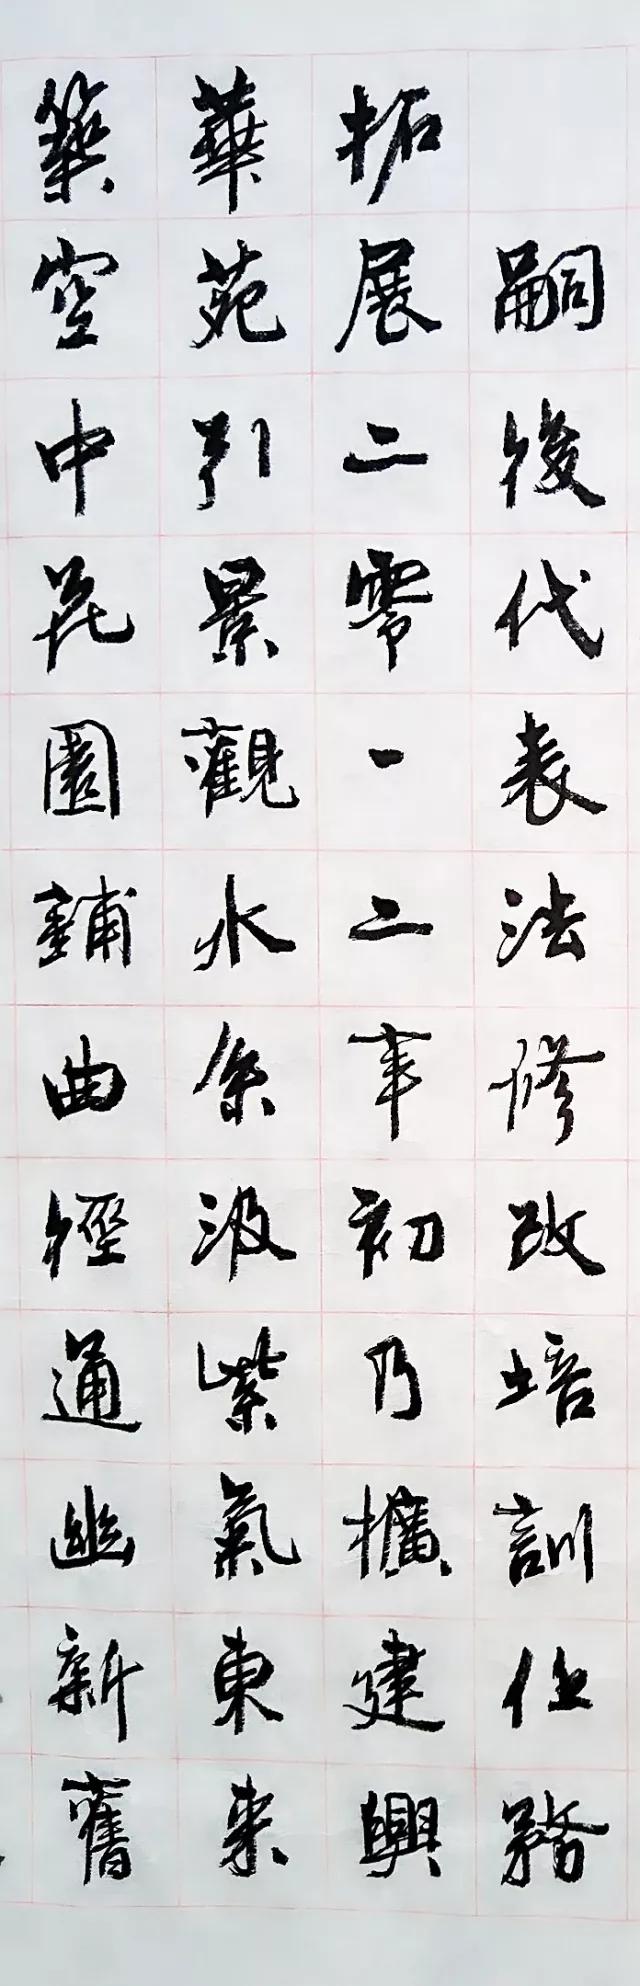 嗣後代表法修改培訓任務
拓展二零一二年初乃擴建興
華苑引景觀水系汲紫氣東来
築空中花園鋪曲徑通幽新舊